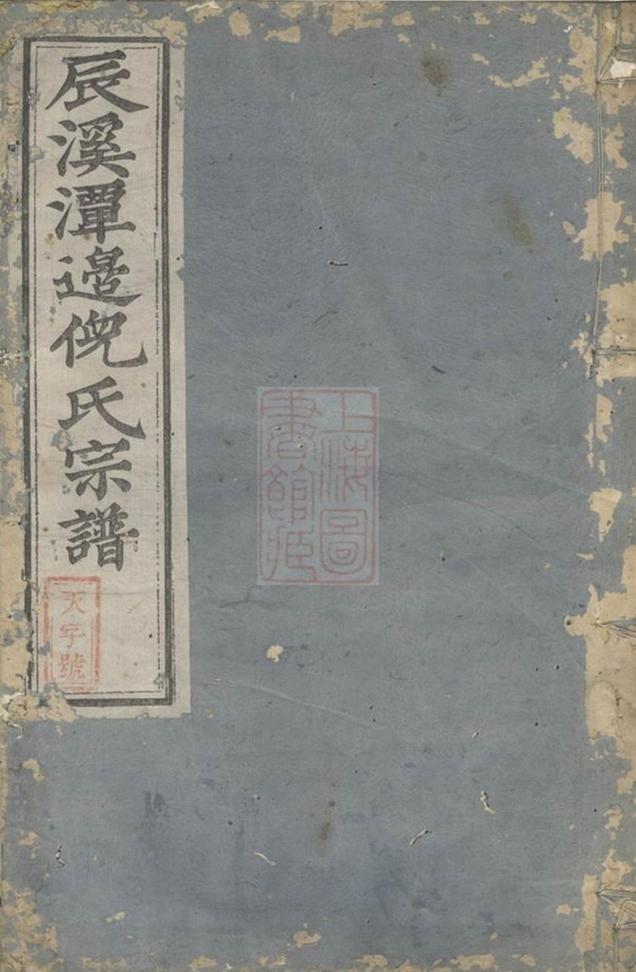 辰溪潭邊倪氏宗譜
天字號
上海圖
書館藏